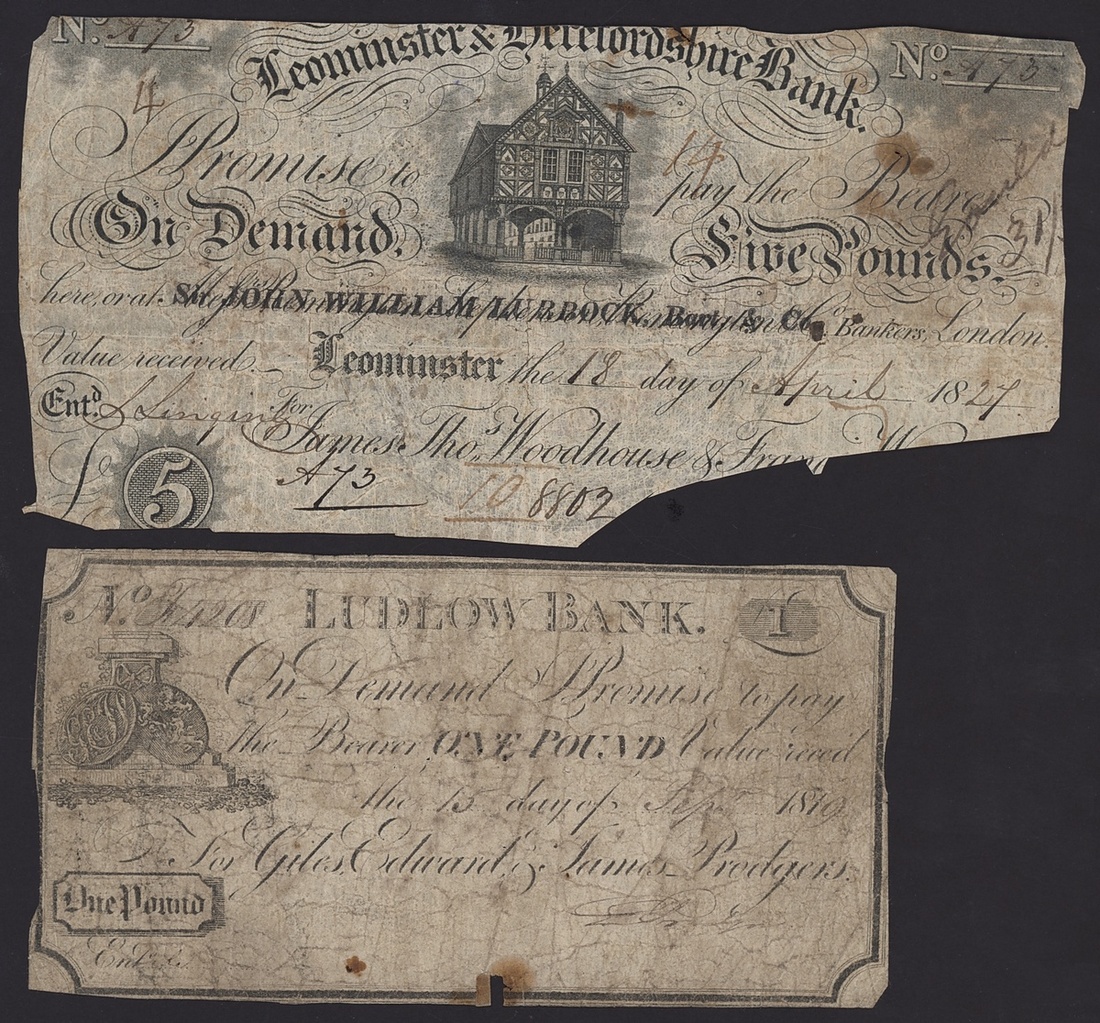 No. A73
No. A73
Leominster & Herefordshire Bank.
4
14
I Promise to pay the Bearer
On Demand, Five Pounds.
31
here, or at Sir JOHN WILLIAM LUBBOCK, Bart. & Co. Bankers, London.
Value received. Leominster the 18 day of April 1827
Entd. For
James, Thos. Woodhouse &
A73 10 8802
£5
No. 1208 LUDLOW BANK. 1
On Demand I Promise to pay
the Bearer ONE POUND Value recd
the 15 day of Sepr 1819
For Giles, Edward, & James Prodgers.
One Pound
Entd.